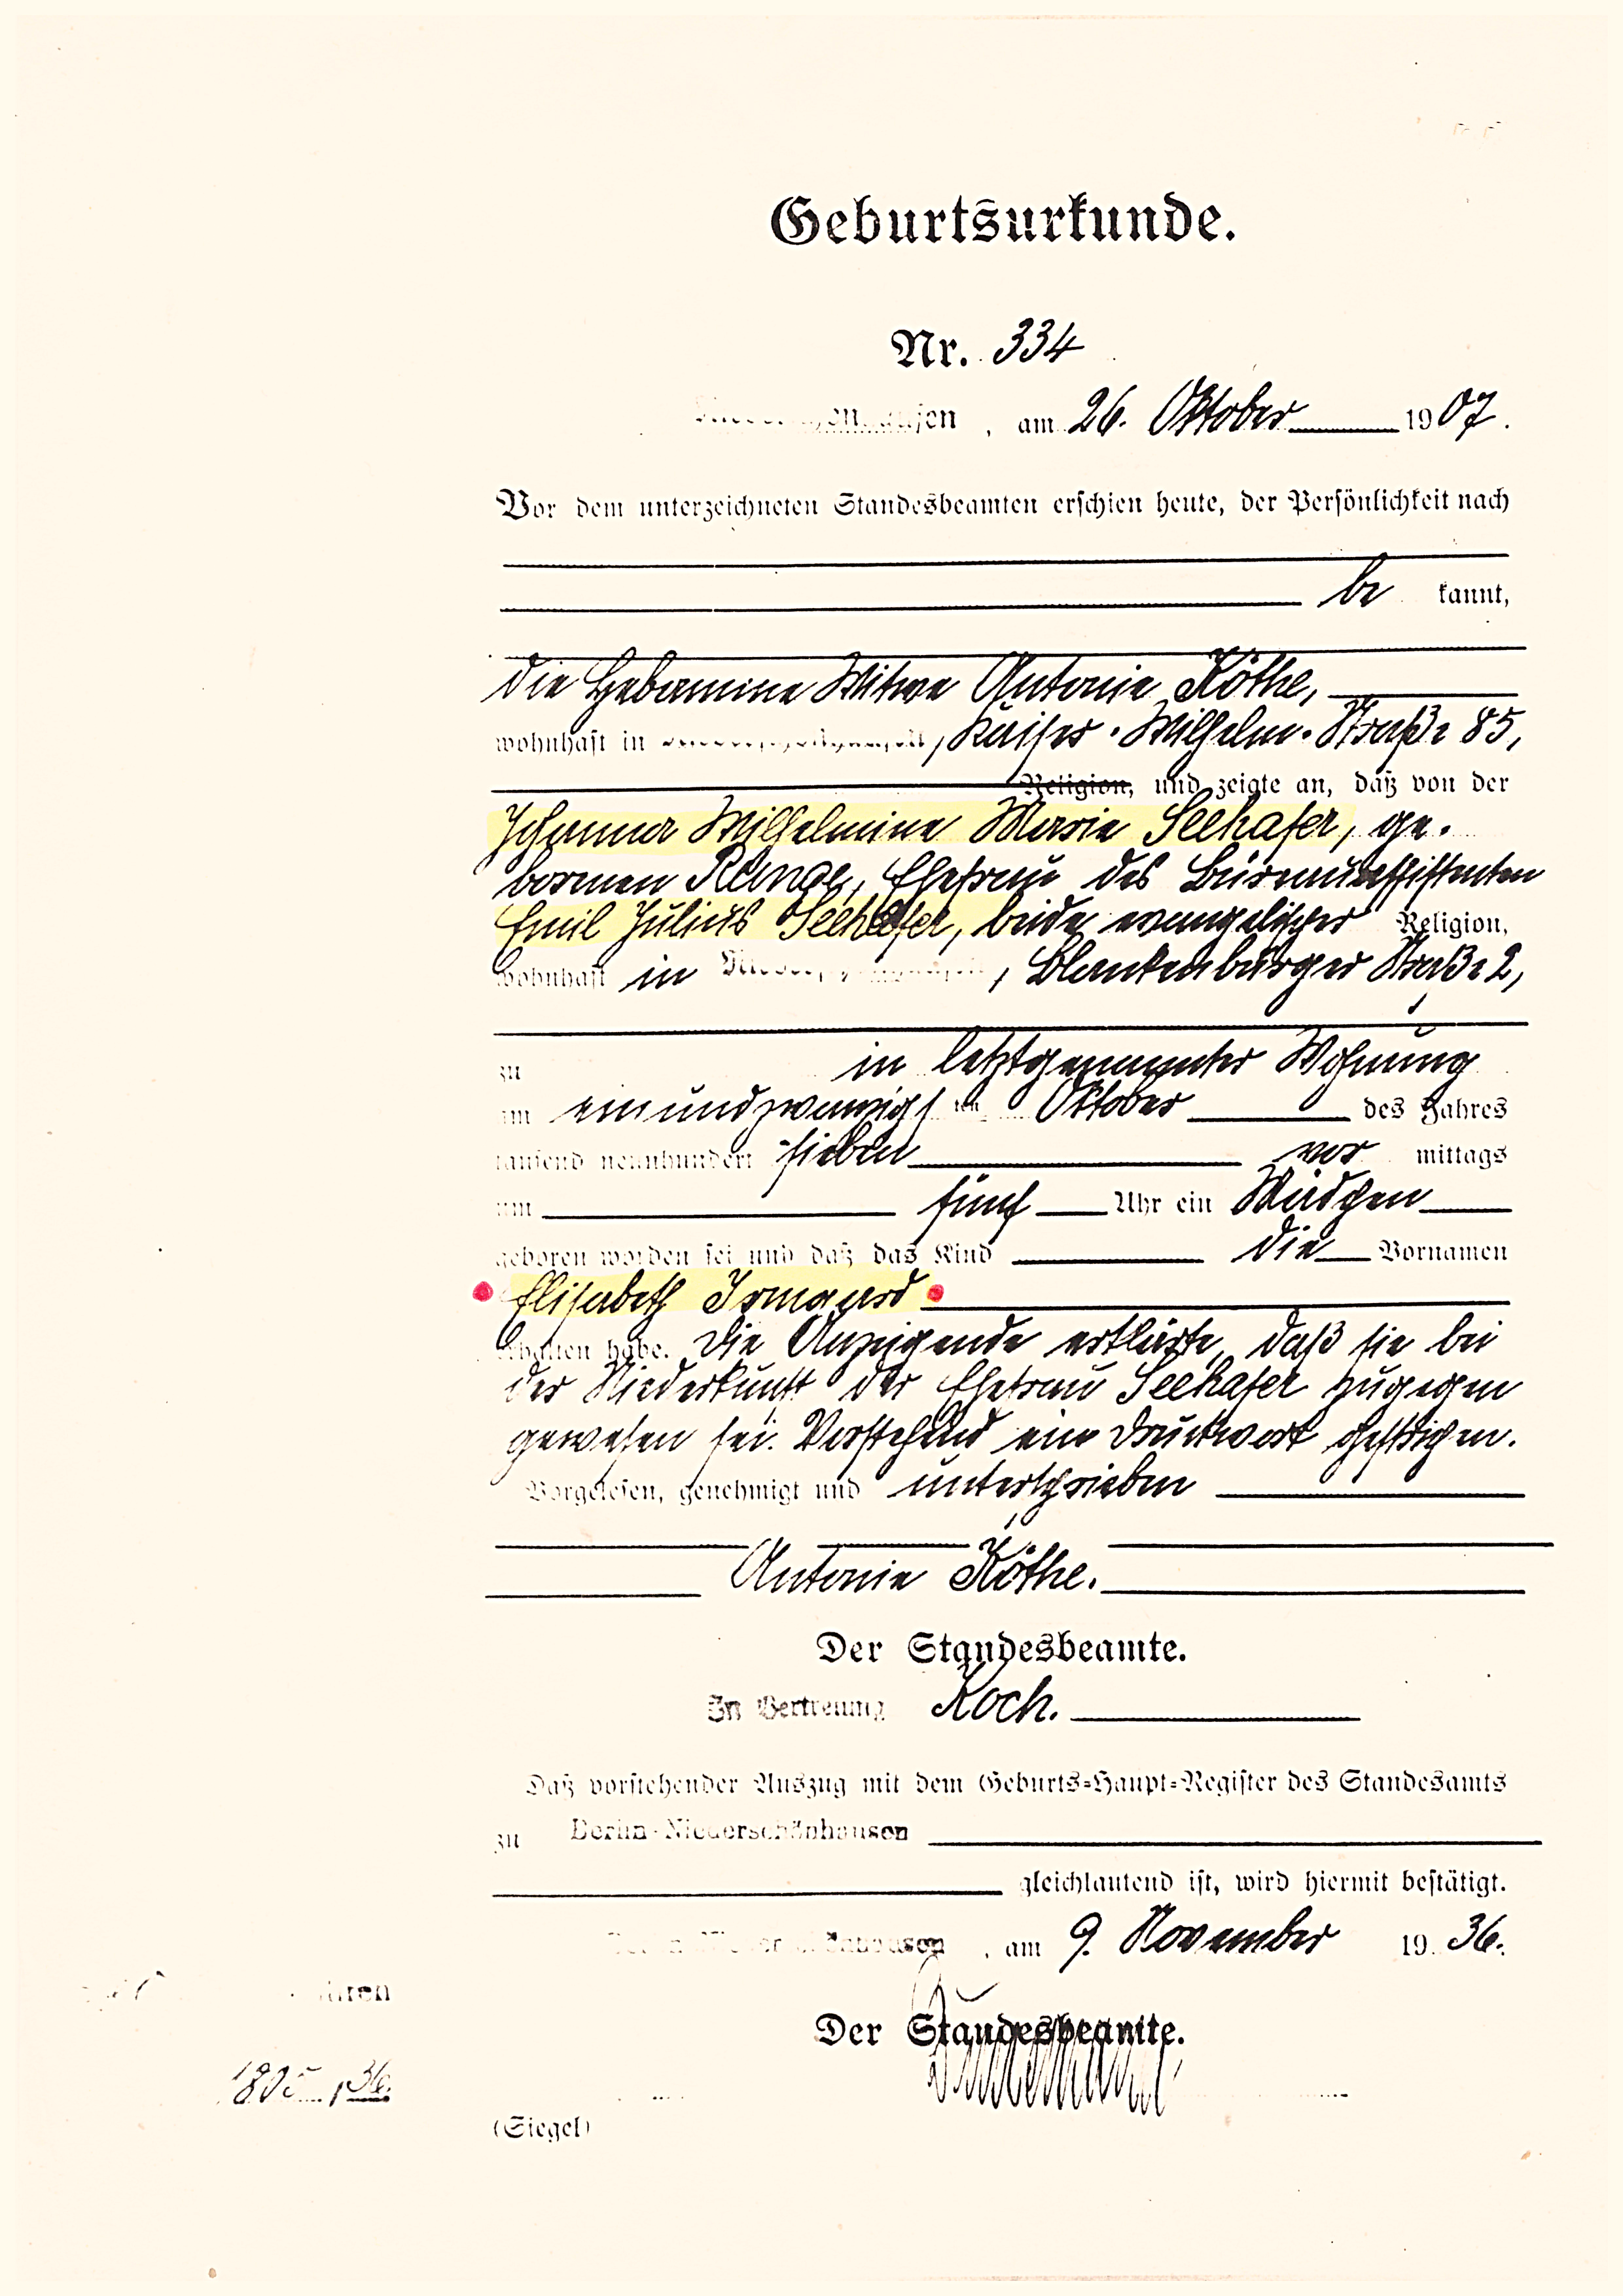 Geburtsurkunde.
Nr. 334
am 26. Oktober 1907.
Vor dem unterzeichneten Standesbeamten erschien heute, der Persönlichkeit nach
be kannt,
die Hebamme Witwe Antonie Köthe,
wohnhaft in , Kaiser-Wilhelm-Straße 85,
Religion, und zeigte an, daß von der
Johanna Wilhelmine Marie Seehafer, ge-
borenen Runge, Ehefrau des Büreauassistenten
Emil Julius Seehafer, beide evangelischer Religion,
wohnhaft in , Blankenburger Straße 2,
zu in letztgenannter Wohnung
am einundzwanzigsten Oktober des Jahres
tausend neunhundert sieben vor mittags
um fünf Uhr ein Mädchen
geboren worden sei und daß das Kind die Vornamen
Elisabeth Irmgard
erhalten habe. Die Anzeigende erklärte, daß sie bei
der Niederkunft der Ehefrau Seehafer zugegen
gewesen sei. Vorstehend ein Druckwort gestrichen.
Vorgelesen, genehmigt und unterschrieben
Antonie Köthe.
Der Standesbeamte.
In Vertretung Koch.
Daß vorstehender Auszug mit dem Geburts-Haupt-Register des Standesamts
zu Berlin-Niederschönhausen
gleichlautend ist, wird hiermit bestätigt.
am 9. November 1936.
Der Standesbeamte.
(Siegel)